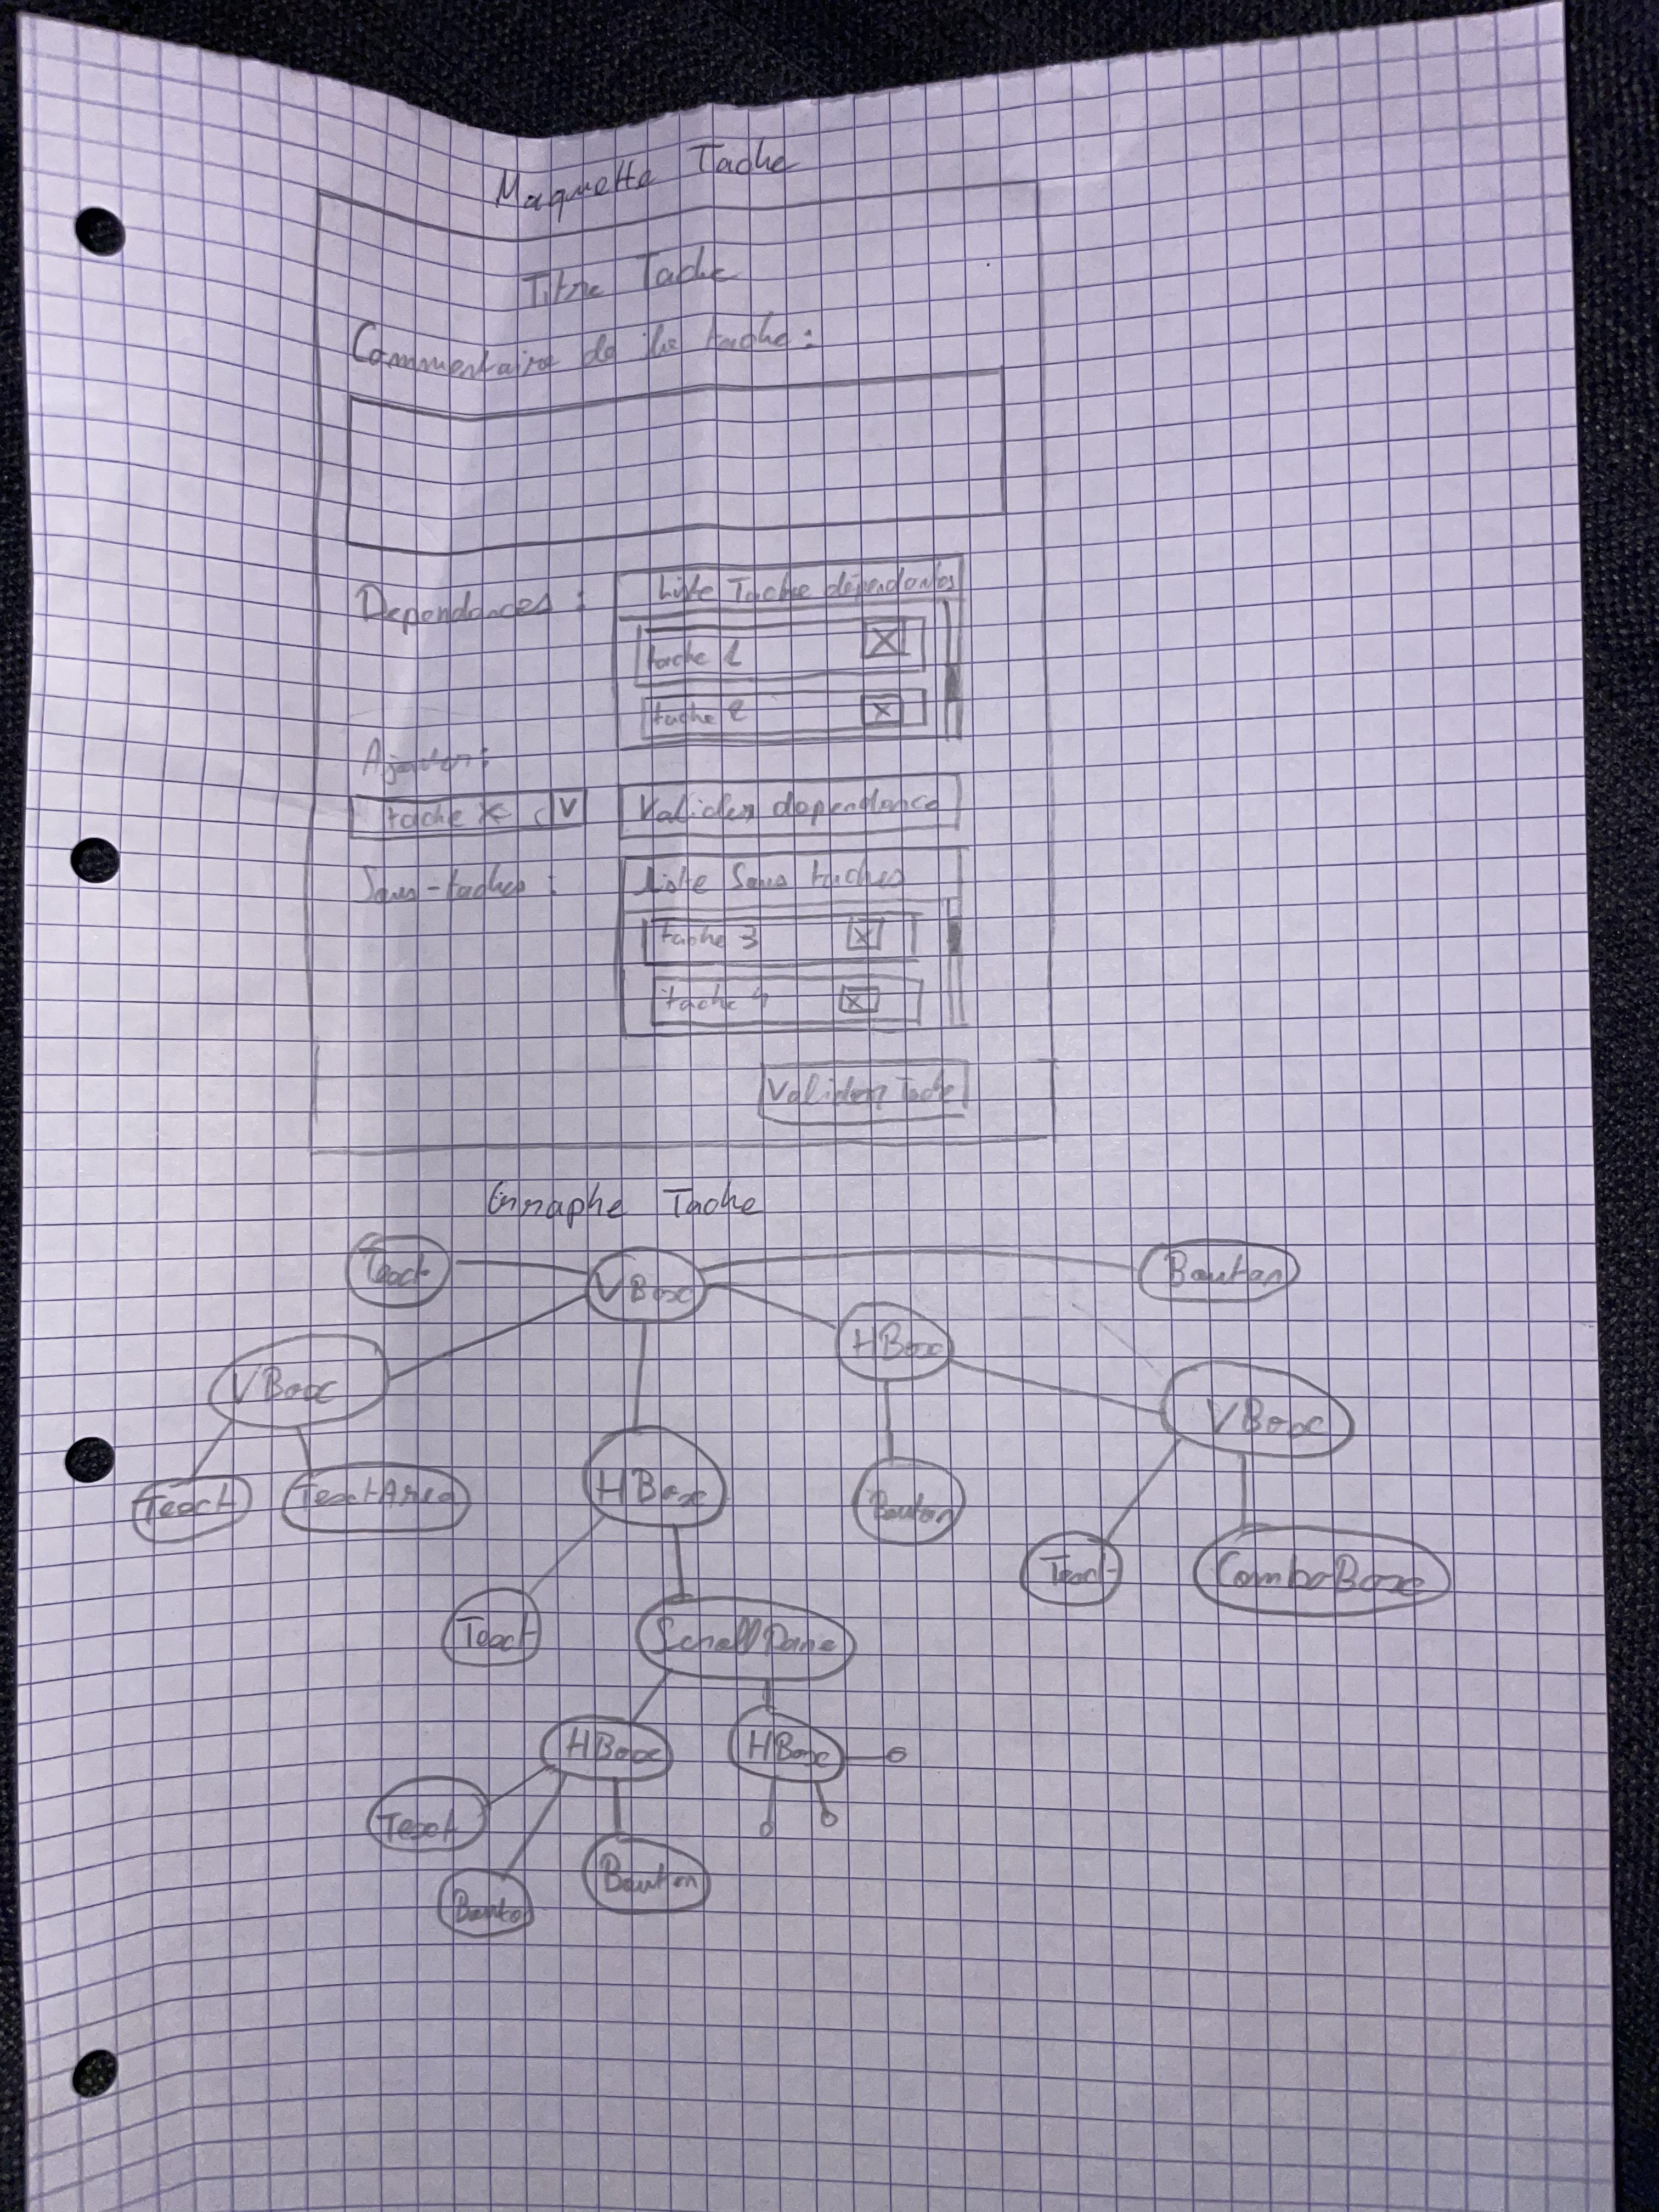 Maquette Tache
Titre Tache
Commentaire de la tache :
Dependances :
Liste Tache dépendantes
tache 1 X
tache 2 X
Ajouter :
tache X V
Valider dependance
Sous-taches :
Liste Sous taches
tache 3 X
tache 4 X
Valider Tache
Graphe Tache
Text VBox Bouton
VBox HBox
VBox
Text TextArea HBox Bouton
Text ComboBox
Text ScrollPane
HBox HBox
Text
Bouton Bouton